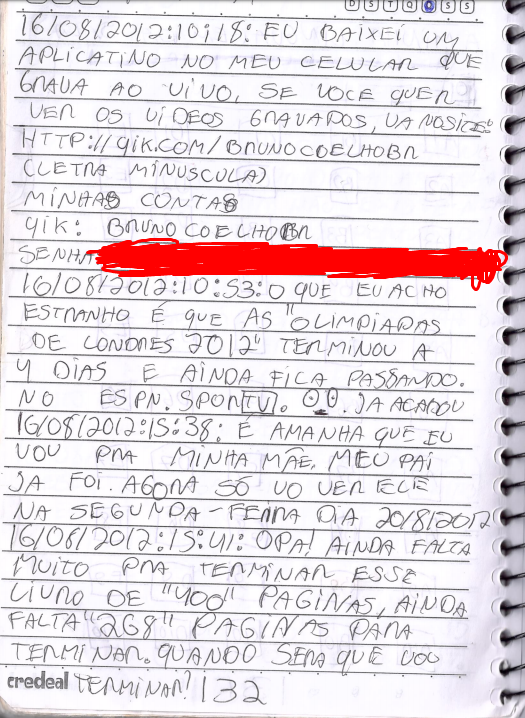 D S T Q Q S S
16/08/2012:10:18: EU BAIXEI UM
APLICATINO NO MEU CELULAR QUE
GRAVA AO VIVO, SE VOCE QUER
VER OS VIDEOS GRAVADOS, VA NO SITE:
HTTP://qik.COM/BRUNOCOELHOBR
(LETRA MINUSCULA)
MINHAS CONTAS
qik: BRUNOCOELHOBR
SENHA
16/08/2012:10:53: O QUE EU ACHO
ESTRANHO É QUE AS "OLIMPIADAS
DE LONDRES 2012" TERMINOU A
4 DIAS E AINDA FICA PASSANDO.
NO ESPN. SPORTV. JA ACABOU
16/08/2012:15:38: E AMANHA QUE EU
VOU PRA MINHA MÃE. MEU PAI
JA FOI. AGORA SÓ VO VER ELE
NA SEGUNDA-FEIRA DIA 20/8/2012
16/08/2012:15:41: OPA! AINDA FALTA
MUITO PRA TERMINAR ESSE
LIVRO DE "400" PAGINAS, AINDA
FALTA "268" PAGINAS PARA
TERMINAR. QUANDO SERA QUE VOU
credeal TERMINAR? 132